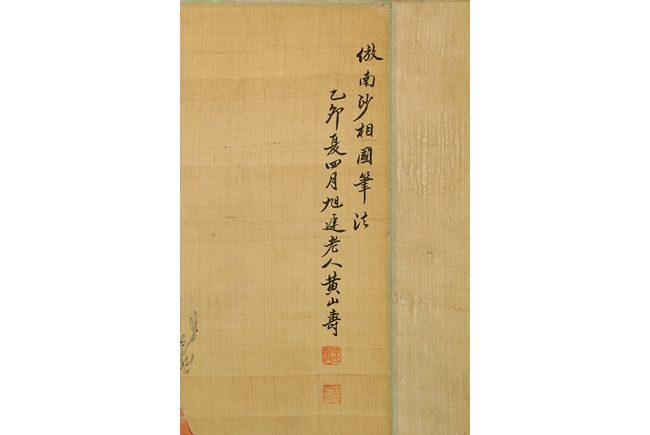 倣南沙相國筆法
乙卯夏四月旭遲老人黄山壽